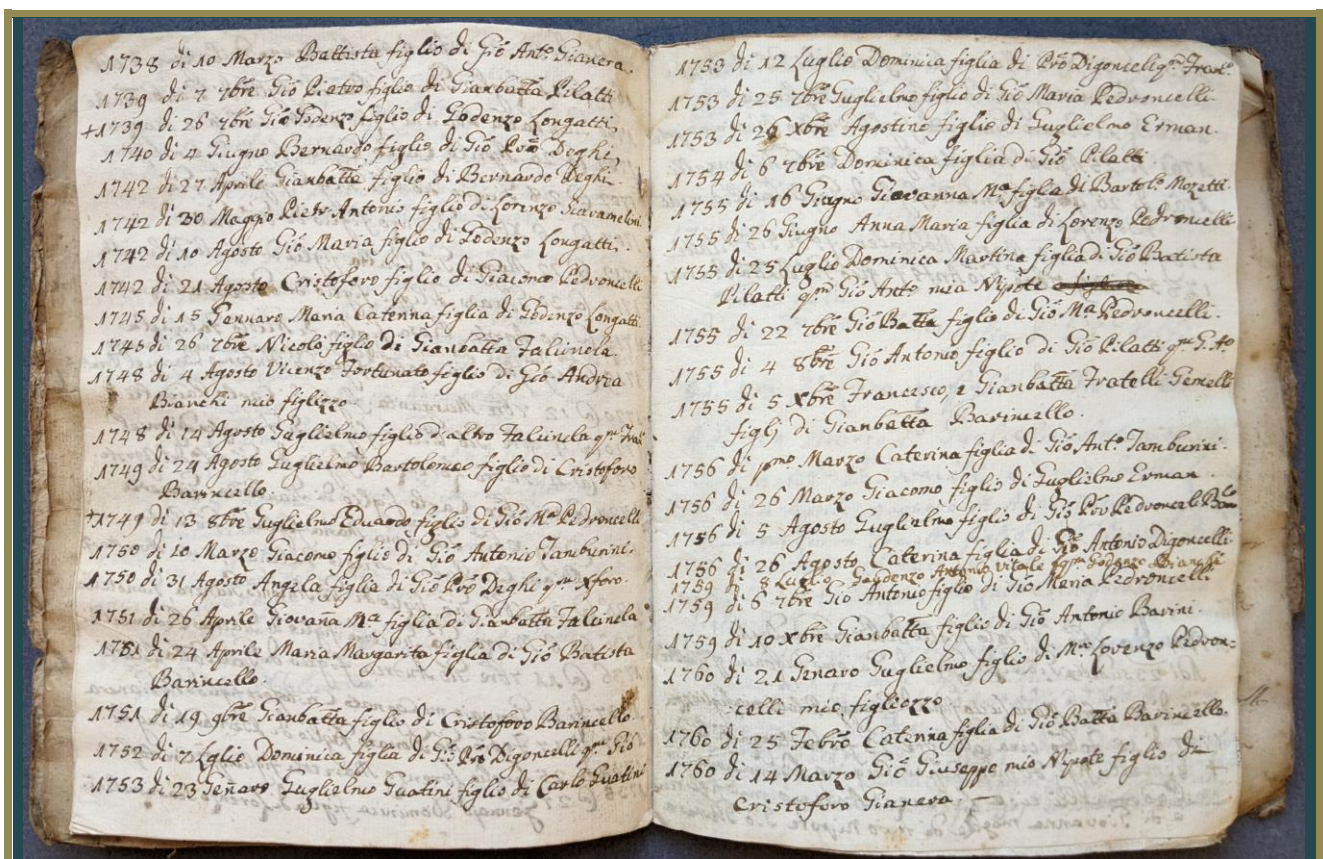 1738 di 10 Marzo Battista figlio di Gio Anto. Gianera.
1739 di 7 7bre Gio Pietro figlio di Gianbatta Pilatti
+1739 di 26 7bre Gio Godenzo figlio di Godenzo Longatti,
1740 di 4 Giugno Bernardo figlio di Gio Pro Deghi,
1742 di 27 Aprile Gianbatta figlio di Bernardo Deghi.
1742 di 30 Maggio Pietr Antonio figlio di Lorenzo
1742 di 10 Agosto Gio Maria figlio di Godenzo Longatti,
1742 di 21 Agosto Cristoforo figlio di Giacomo Pedroncelli
1745 di 15 Gennaro Maria Caterina figlia di Godenzo Longatti.
1745 di 26 7bre Nicolò figlio di Gianbatta Falcinela.
1748 di 4 Agosto Vicenzo Fortunato figlio di Gio Andrea
Bianchi mio figliozzo
1748 di 14 Agosto Guglielmo figlio d'altro Falcinela qm
1749 di 24 Agosto Guglielmo Bartolomeo figlio di Cristoforo
Barincello
+1749 di 13 8bre Guglielmo Eduardo figlio di Gio Ma Pedroncelli
1750 di 10 Marzo Giacomo figlio di Gio Antonio Tamburini.
1750 di 31 Agosto Angela figlia di Gio Pro Deghi qm Xforo.
1751 di 26 Aprile Giovana Ma figlia di Gianbatta Falcinela
1751 di 24 Aprile Maria Margarita figlia di Gio Batista
Barincello.
1751 di 19 9bre Gianbatta figlio di Cristoforo Barincello.
1752 di 7 Lglio Dominica figlia di Gio Pro Digoncelli qm Gio
1753 di 23 Genaro Guglielmo Guatini figlio di Carlo Guatini
1753 di 12 Luglio Dominica figlia di Pro Digonceli qm Fran.
1753 di 25 7bre Guglielmo figlio di Gio Maria Pedroncelli
1753 di 26 Xbre Agostino figlio di Guglielmo Erman.
1754 di 6 7bre Dominica figlia di Gio Pilatti.
1755 di 16 Giugno Giovanna Ma figlia di Bartolo. Mozetti
1755 di 26 Giugno Anna Maria figlia di Lorenzo Pedroncelli
1755 di 25 Luglio Dominica Martina figlia di Gio Batista
Pilatti qm Gio Anto mia Nipote
1755 di 22 7bre Gio Batta figlio di Gio Ma Pedroncelli.
1755 di 4 8bre Gio Antonio figlio di Gio Pilatti qm G. Ao
1755 di 5 Xbre Francesco, e Gianbatta Fratelli Gemelli
figlj di Gianbatta Barincello.
1756 di pmo Marzo Caterina figlia di Gio Anto. Tamburini.
1756 di 26 Marzo Giacomo figlio di Guglielmo Erman
1756 di 5 Agosto Guglielmo figlio di Gio Pro Pedronceli
1756 di 26 Agosto Caterina figlia di Gio Antonio Digoncelli.
1759 di 8 Luglio Gaudenzo Antonio Vitale qm Godenzo Bianchi
1759 di 6 7bre Gio Antonio figlio di Gio Maria Pedroncelli
1759 di 10 Xbre Gianbatta figlio di Gio Antonio Barini.
1760 di 21 Genaro Guglielmo figlio di Mro Lorenzo Pedron=
celli mio figliozzo
1760 di 25 Febro Caterina figlia di Gio Batta Barincello.
1760 di 14 Marzo Gio Giuseppe mio Nipote figlio di
Cristoforo Gianera